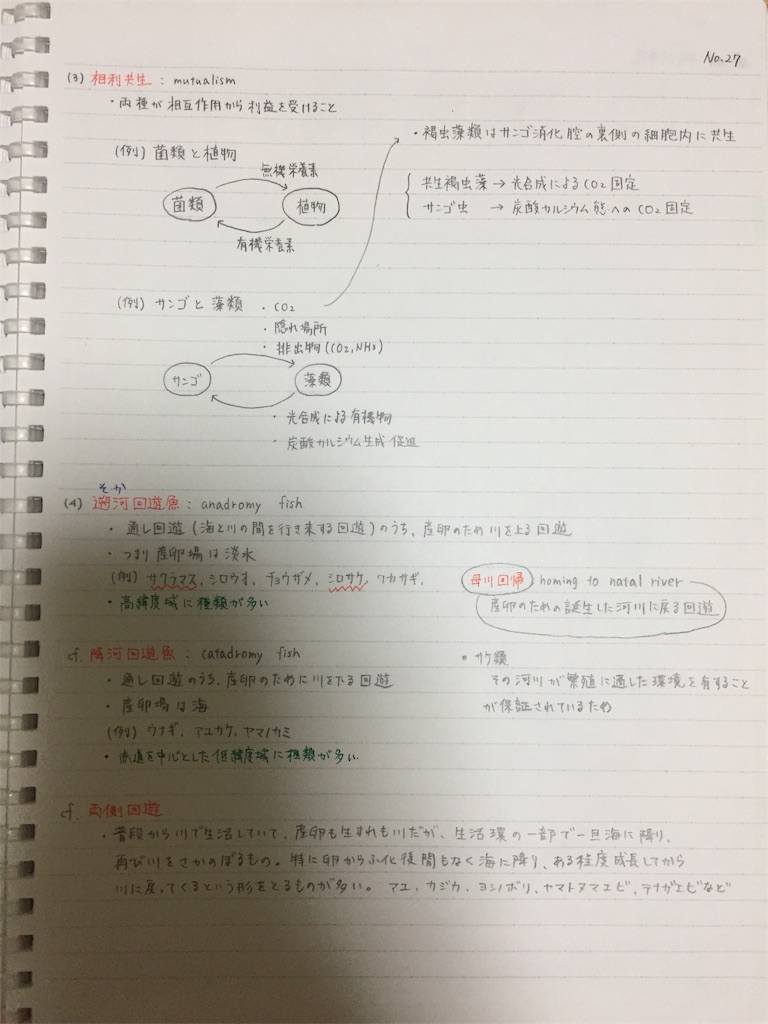 No.27
(3) 相利共生 : mutualism
・両種が相互作用から利益を受けること
・褐虫藻類はサンゴ消化腔の裏側の細胞内に共生
(例) 菌類と植物
無機栄養素
共生褐虫藻 → 光合成によるCO2固定
菌類
植物
サンゴ虫 → 炭酸カルシウム態へのCO2固定
有機栄養素
(例) サンゴと藻類
・CO2
・隠れ場所
・排出物(CO2,NH3)
サンゴ
藻類
・光合成による有機物
・炭酸カルシウム生成促進
そか
(4) 遡河回遊魚 : anadromy fish
・通し回遊 (海と川の間を行き来する回遊) のうち、産卵のため川を上る回遊
・つまり産卵場は淡水
(例) サクラマス, シロウオ, チョウザメ, シロサケ, ワカサギ,
母川回帰 homing to natal river
・高緯度域に種類が多い
産卵のための誕生した河川に戻る回遊
cf. 降河回遊魚 : catadromy fish
・サケ類
・通し回遊のうち、産卵のために川を下る回遊
その河川が繁殖に適した環境を有すること
・産卵場は海
が保証されているため
(例) ウナギ, アユカケ, ヤマノカミ
・赤道を中心とした低緯度域に種類が多い
cf. 両側回遊
・普段から川で生活していて、産卵も生まれも川だが、生活環の一部で一旦海に降り、
再び川をさかのぼるもの。特に卵からふ化後間もなく海に降り、ある程度成長してから
川に戻ってくるという形をとるものが多い。 アユ, カジカ, ヨシノボリ, ヤマトヌマエビ, テナガエビなど